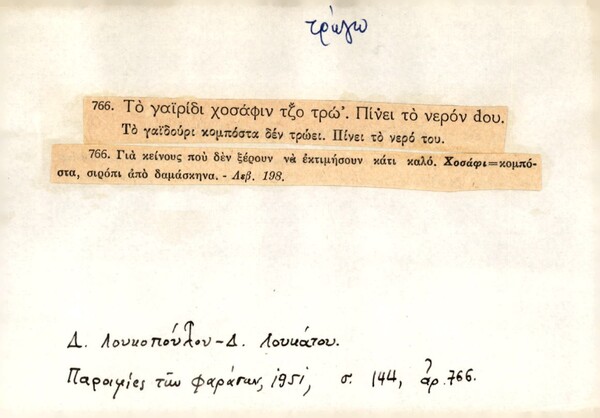 τρώγω
766. Τὸ γαϊρίδι χοσάφιν τζ̌ο τρώ’. Πίνει τὸ νερόν dου.
Τὸ γαϊδούρι κομπόστα δέν τρώει. Πίνει τὸ νερό του.
766. Γιὰ κείνους ποὺ δὲν ξέρουν νὰ εκτιμήσουν κάτι καλό. Χοσάφι=κομπό-
στα, σιρόπι ἀπὸ δαμάσκηνα. - Λεβ. 198.
Δ. Λουκοπούλου - Δ. Λουκάτου.
Παροιμίες τῶν Φαράσων, 1951, σ. 144, ἀρ. 766.